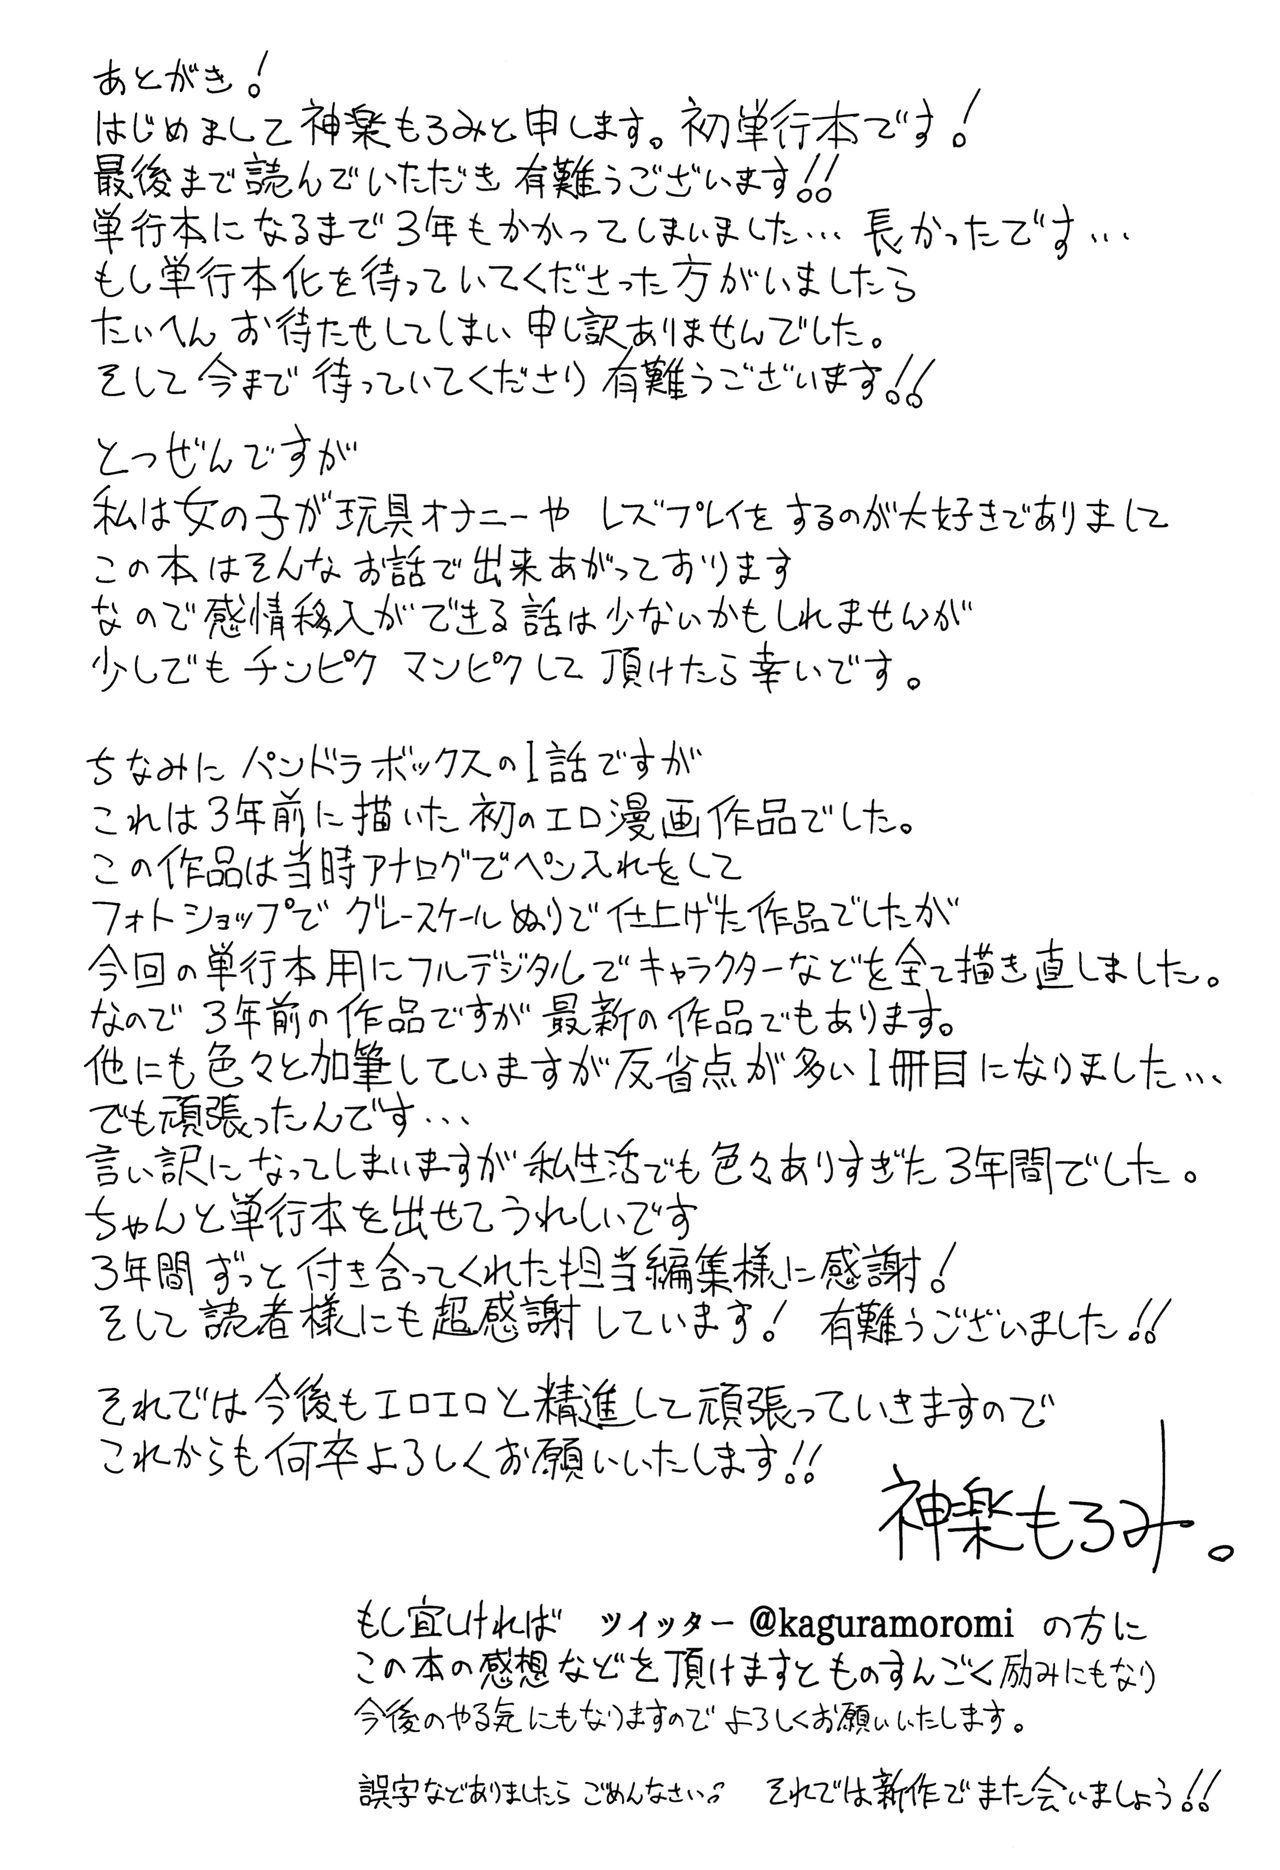 あとがき!
はじめまして神楽もろみと申します。初単行本です!
最後まで読んでいただき有難うございます!!
単行本になるまで3年もかかってしまいました… 長かったです…
もし単行本化を待っていてくださった方がいましたら
たいへんお待たせしてしまい申し訳ありませんでした。
そして今まで待っていてくださり有難うございます!!
とつぜんですが
私は女の子が玩具オナニーや レズプレイをするのが大好きでありまして
この本はそんなお話で出来あがっております
なので感情移入ができる話は少ないかもしれませんが
少しでもチンピク マンピクして頂けたら幸いです。
ちなみにパンドラボックスの1話ですが
これは3年前に描いた初のエロ漫画作品でした。
この作品は当時アナログでペン入れをして
フォトショップでグレースケールぬりで仕上げた作品でしたが
今回の単行本用にフルデジタルでキャラクターなどを全て描き直しました。
なので3年前の作品ですが最新の作品でもあります。
他にも色々と加筆していますが反省点が多い1冊目になりました…
でも頑張ったんです…
言い訳になってしまいますが私生活でも色々ありすぎた3年間でした。
ちゃんと単行本を出せてうれしいです
3年間ずっと付き合ってくれた担当編集様に感謝!
そして読者様にも超感謝しています! 有難うございました!!
それでは今後もエロエロと精進して頑張っていきますので
これからも何卒よろしくお願いいたします!!
神楽もろみ。
もし宜しければ ツイッター @kaguramoromi の方に
この本の感想などを頂けますとものすんごく励みにもなり
今後のやる気にもなりますのでよろしくお願いいたします。
誤字などありましたらごめんなさい。 それでは新作でまた会いましょう!!